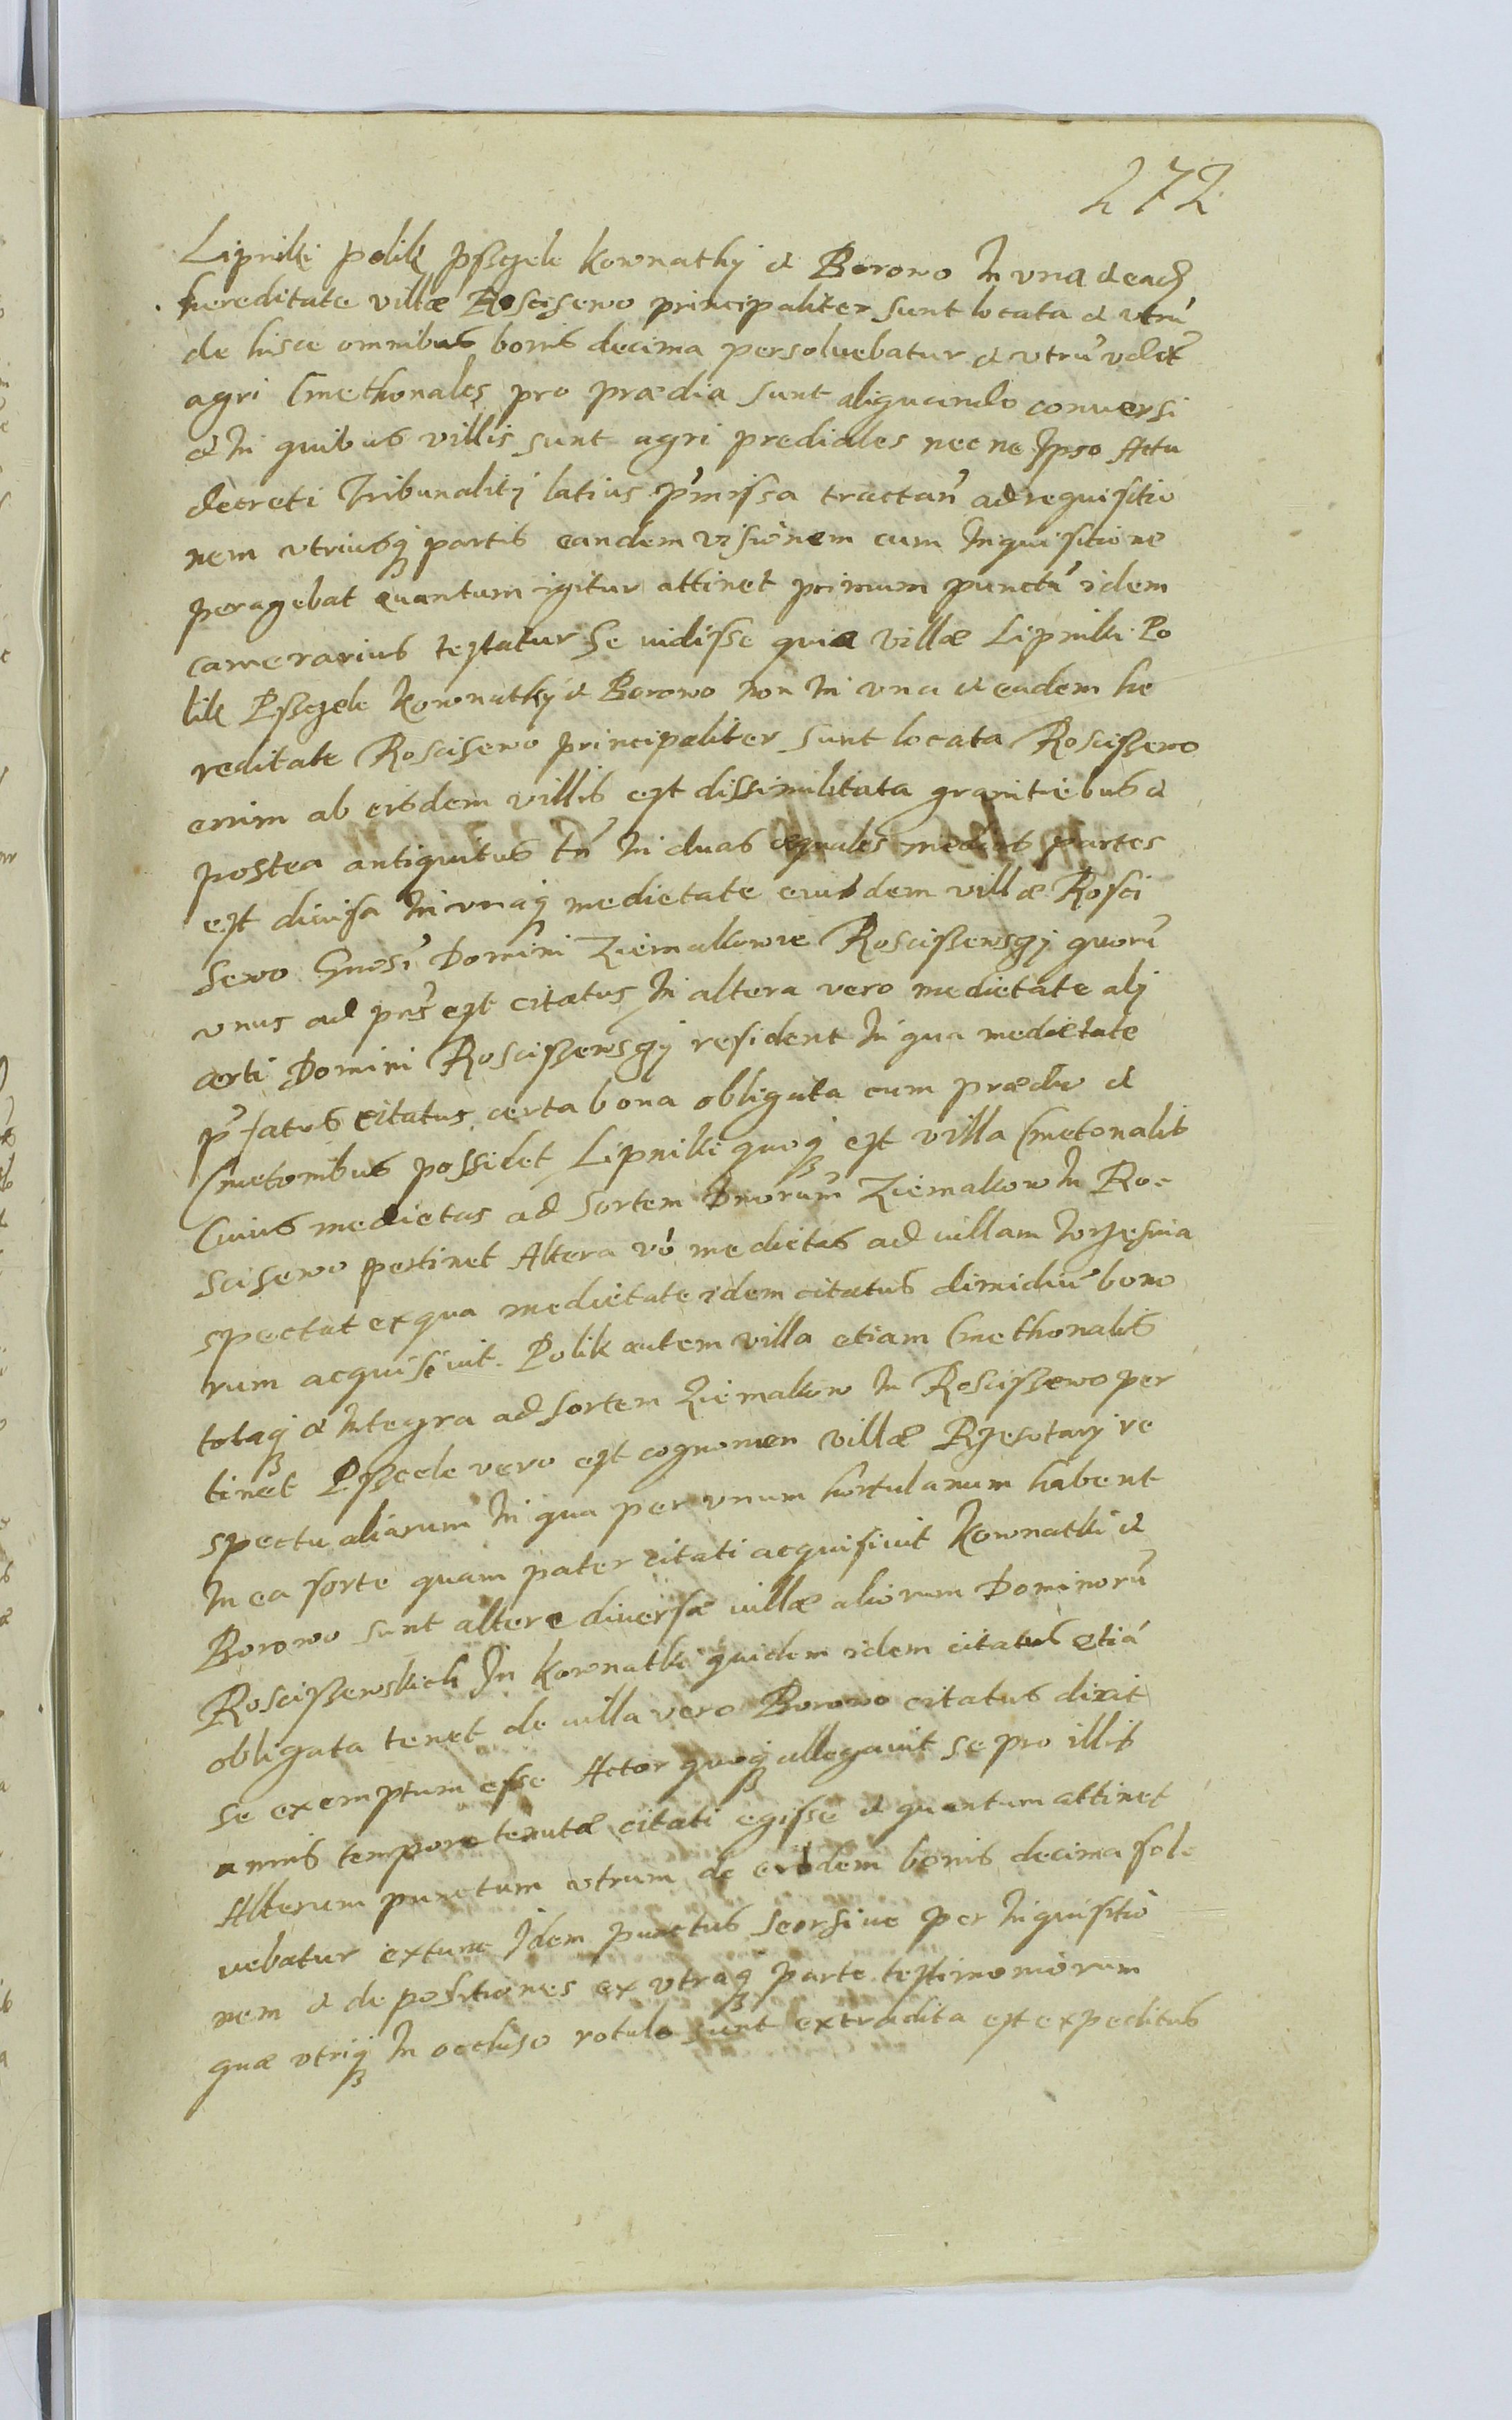 272
Lipniki Polik Psszele Kownathy et Borowo In vna et eadē
hereditate villæ Roscisewo principaliter sunt locata et vtrū
de hisce omnibus bonis decima persoluebatur et vtrū
agri Cmethonales pro prædia sunt aliquando conuersi
et In quibus villis sunt agri prediales nec ne Ipso Actu
decreti Tribunalitij latius p̃missa tractan̄ ad requisitio
nem vtriusq; partis eandem visionem cum Inquisitione
peragebat quantum igitur attinet primum punctū idem
camerarius testatur se uidisse quia villæ Lipniki Po
lik Pßczele Kownatky et Borowo non In vna et eadem he
reditate Roscisewo principaliter sunt locata Rosciszewo
enim ab eisdem villis est dissimilitata granitiebus et
postea antiquitus tn̄ In duas æquales medias partes
est diuisa In vnaq; medietate eiusdem villæ Rosci
sewo Gnosi Domini Ziemakowie Roscißewsgy quorū
vnus ad pn̄s est citatus In altera vero medietate alij
certi Domini Roscißewsgy resident In qua medietate
p̃fatus citatus certa bona obligata cum prædio et
Cmetonibus possidet Lipniki quoq; est villa Cmetonalis
Cuius medietas ad sortem Dnorum Ziemakow In Ro-
scisewo pertinet Altera vō medietas ad uillam
spectat ex qua medietate idem citatus dimidiū bono
rum acquisiuit. Polik autem villa etiam Cmethonalis
totaq; et Integra ad sortem Ziemakow In Roscißewo per
tinet Pßczele vero est cognomen villæ Rzesotary re
spectu aliarum In qua per vnum hortulanum habent
In ea sorte quam pater citati acquisiuit Kownatki et
Borowo sunt altere diuersæ uillæ aliorum Dominorū
Roscißewskich In Kownatki quidem idem citatus etiā
obligata tenet de uilla vero Borowo citatus dixit
se exemptum esse Actor quoq; allegauit se pro illis
annis tempore tenutæ citati egisse et quantum attinet
Alterum punctum vtrum de eisdem bonis decima sol
uebatur extunc Idem punctus seorsiue per Inquisitio
nem et depositiones ex vtraq; parte testimoniorum
quæ vtriq; In occluso rotulo sunt extradita est expeditus